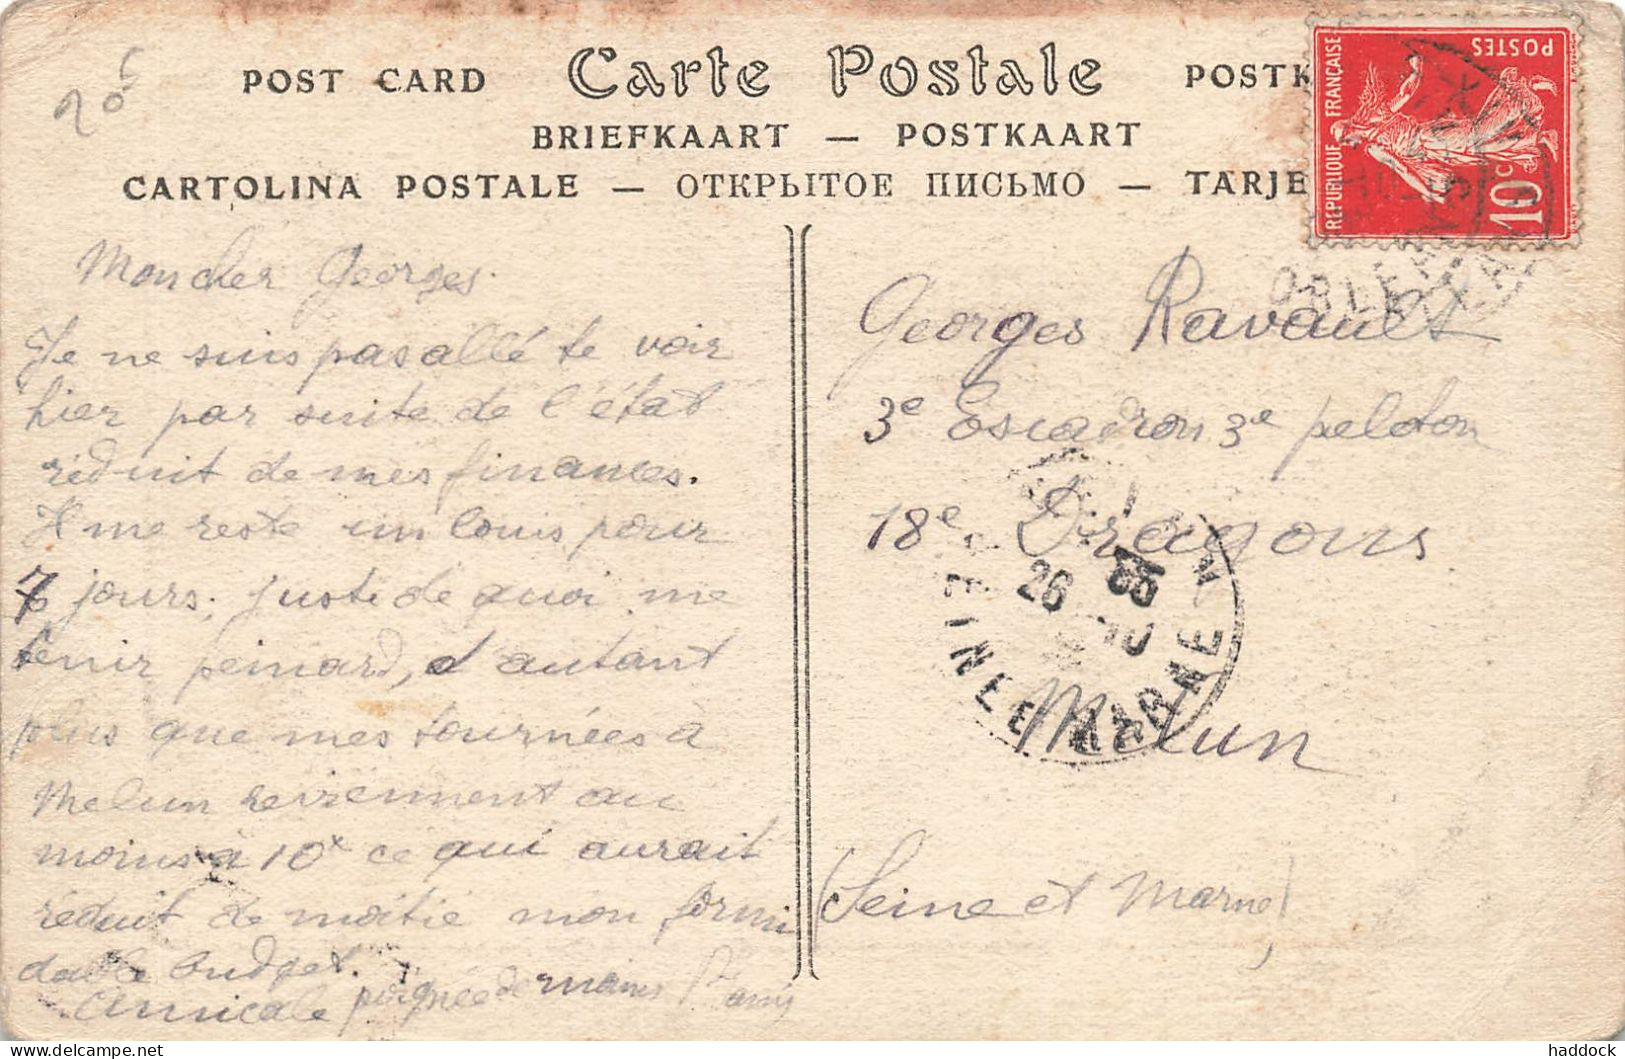 POST CARD Carte Postale POSTK
BRIEFKAART — POSTKAART
CARTOLINA POSTALE — ОТКРЫТОЕ ПИСЬМО — TARJE
REPUBLIQUE FRANÇAISE
POSTES
10c
Mon cher Georges.
Je ne suis pas allé te voir
hier par suite de l'état
réduit de mes finances.
Il me reste un louis pour
7 jours, juste de quoi me
tenir peinard, d'autant
plus que mes tournées à
Melun reviennent au
moins à 10 ce qui aurait
réduit de moitié mon formi
dable budget.
Amicale poignée de mains
Georges Ravault
3e Escadron 3e peloton
18e Dragons
Melun
(Seine et Marne)
26 10
SEINE ET MARNE
haddock